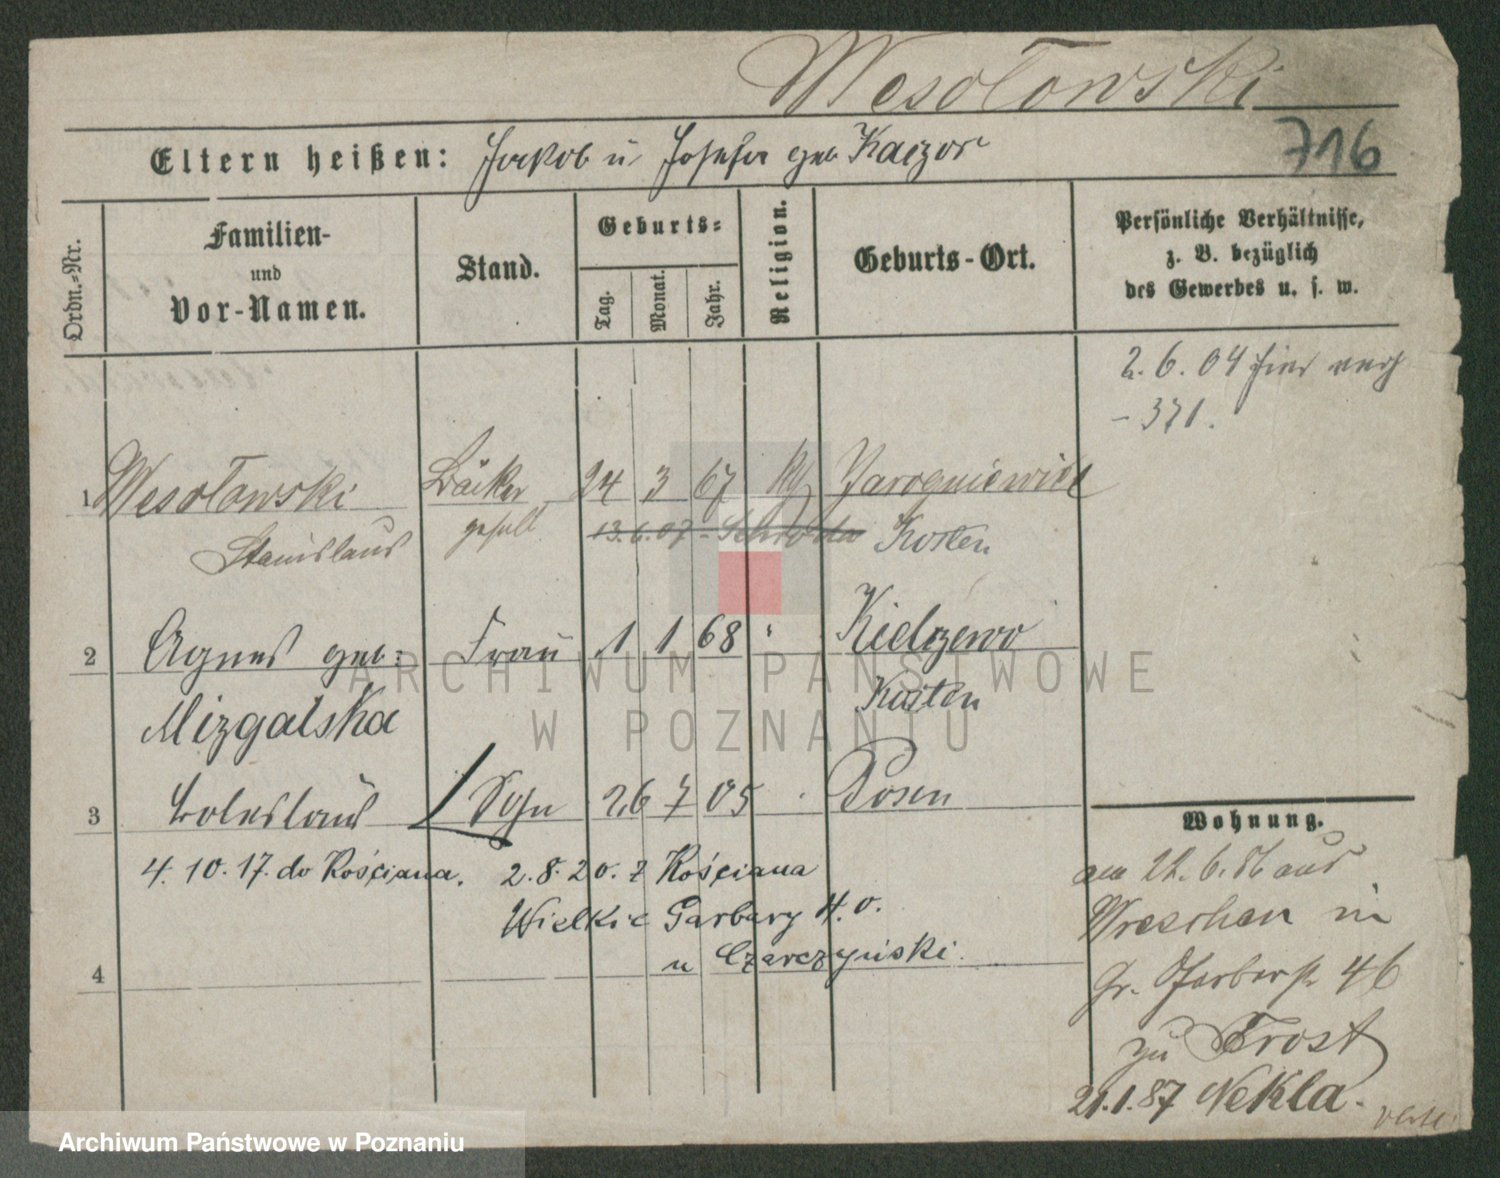 Wesołowski
716
Eltern heißen: Jakob u Josefa geb Kaczor
Ordn.-Nr.
Familien-
und
Vor-Namen.
Stand.
Geburts-
Tag.
Monat.
Jahr.
Religion.
Geburts-Ort.
Persönliche Verhältnisse,
z. B. bezüglich
des Gewerbes u. s. w.
2. 6. 04 hier
- 371.
1 Wesołowski Bäcker 24 3 67 Jarogniewice
Stanislaus gesell 13.6.07 - Schroda Kosten
2 Agnes geb: Frau 1 1 68 " Kielczewo
Mizgalska Kosten
3 Boleslaus Sohn 26 7 05 Posen
4. 10. 17. do Kościana. 2. 8. 20. z Kościana
Wielkie Garbary 40.
u Czarczyński.
4
Wohnung.
am 22. 6. 86 aus
Wreschen in
Gr. Gerberstr 46
zu Frost
21.1.87 Nekla.
ARCHIWUM PAŃSTWOWE
W POZNANIU
Archiwum Państwowe w Poznaniu